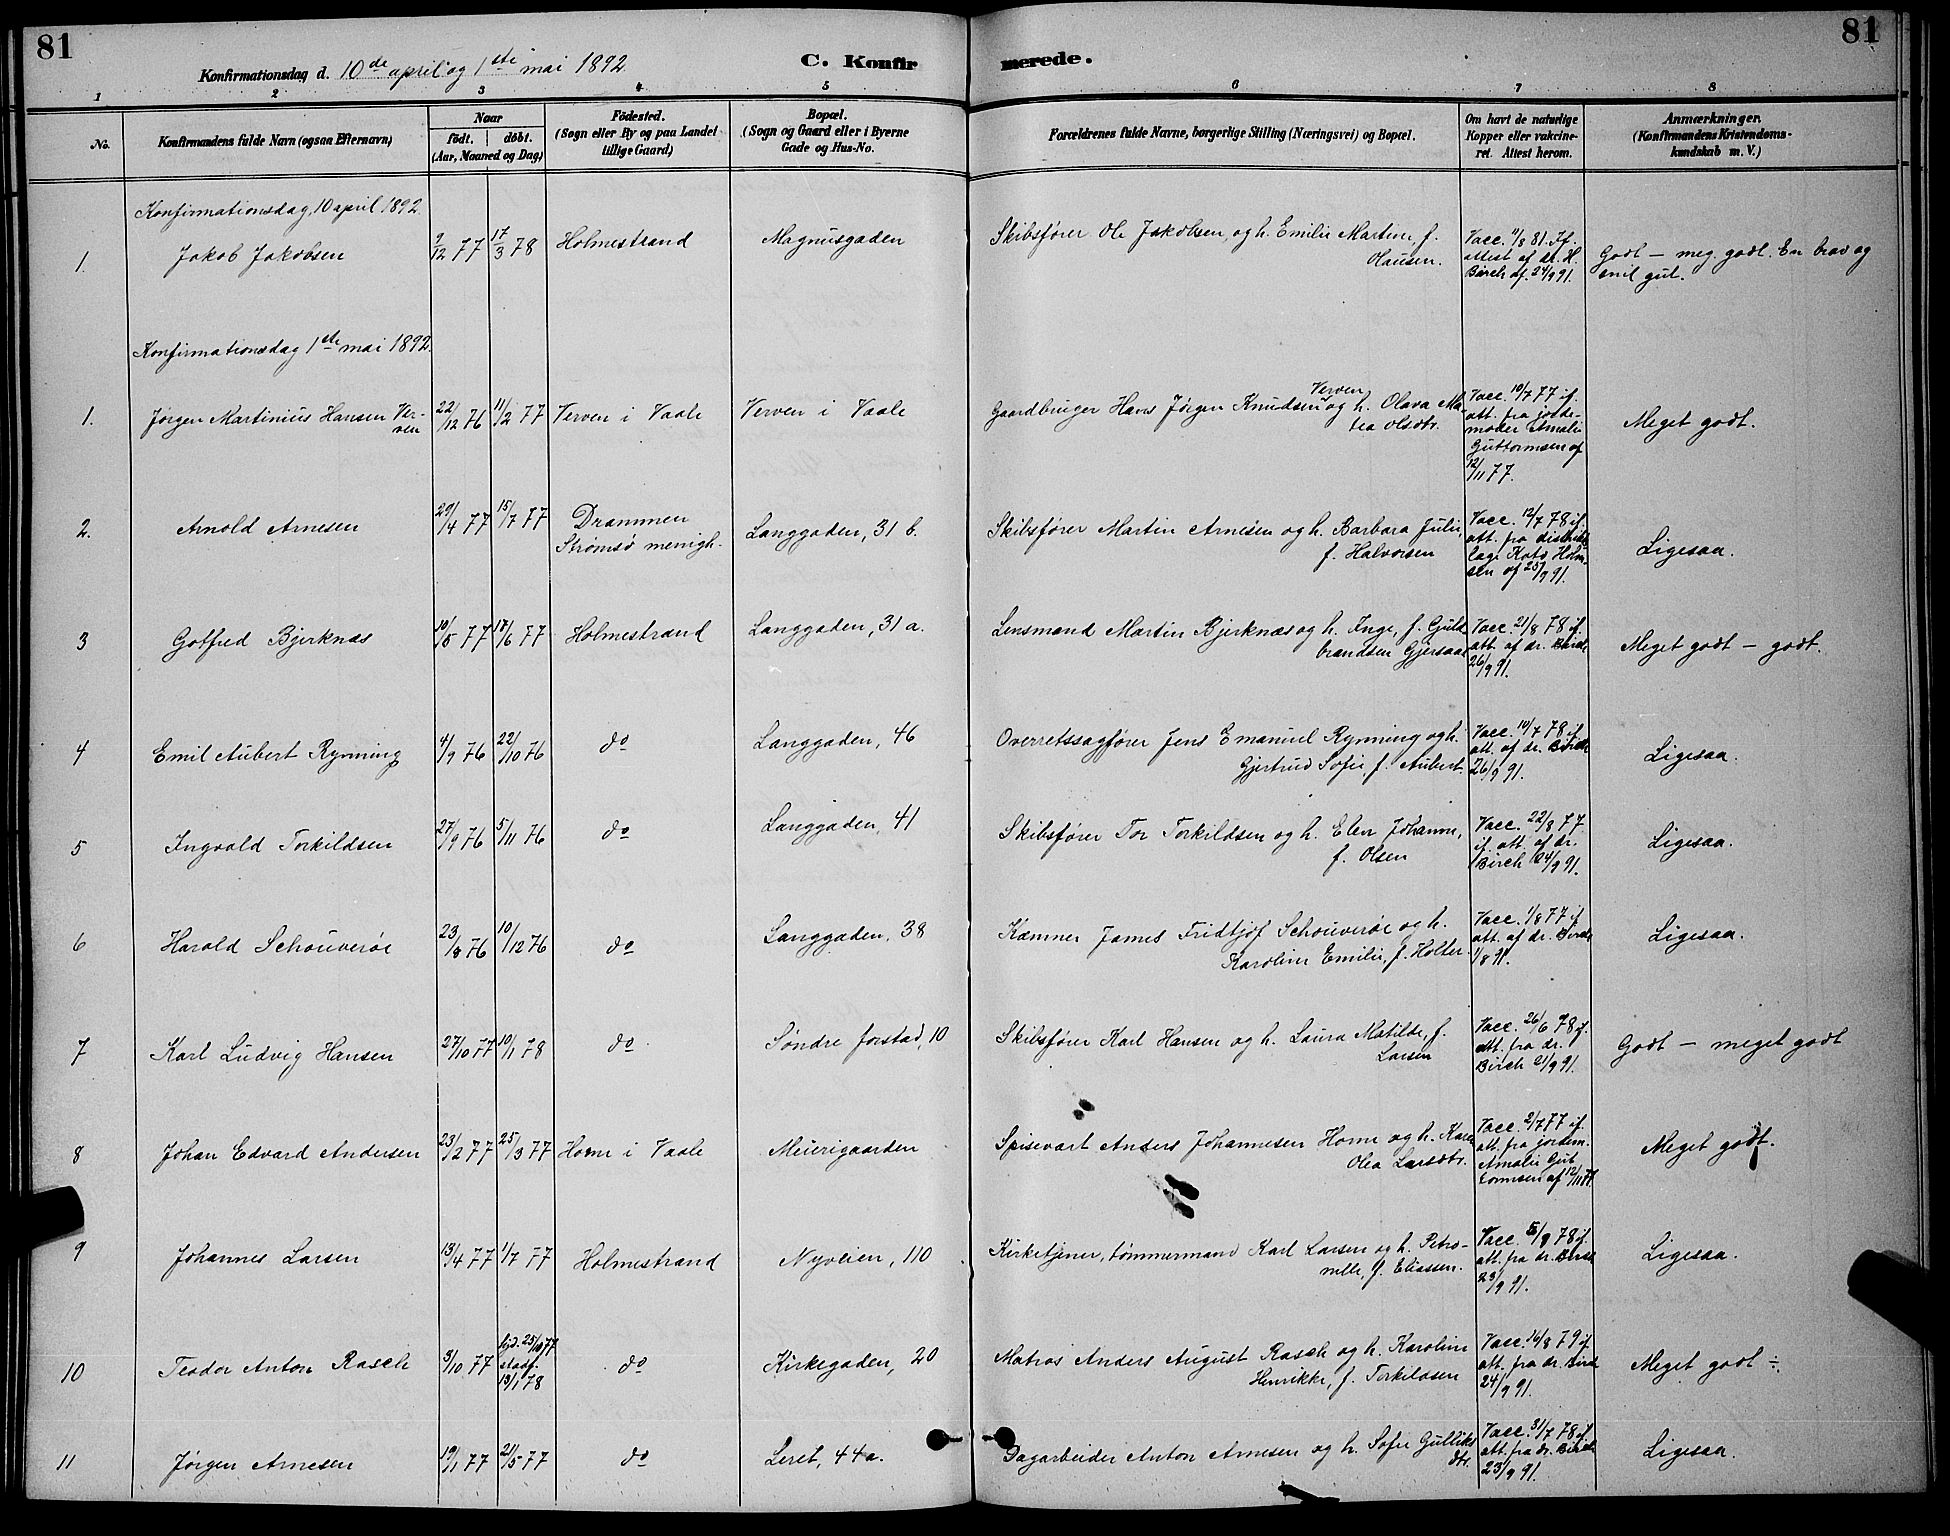 81
81
Konfirmationsdag d. 10de april og 1ste mai 1892.
C. Konfir
merede.
1 2 3 4 5 6 7 8
No.
Konfirmandens fulde Navn (ogsaa Efternavn)
Naar
født. døbt.
(Aar, Maaned og Dag)
Fødested.
(Sogn eller By og paa Landet
tillige Gaard)
Bopæl.
(Sogn og Gaard eller i Byerne
Gade og Hus-No.
Forældrenes fulde Navne, borgerlige Stilling (Næringsvei) og Bopæl.
Om havt de naturlige
Kopper eller vakcine-
ret. Attest herom.
Anmærkninger.
(Konfirmandens Kristendoms-
kundskab m. V.)
Konfirmationsdag, 10 april 1892.
1. Jakob Jakobsen 9/12 77 17/3 78 Holmestrand Magnusgaden
Skibsfører Ole Jakobsen, og h. Emilie Martine, f.
Olausen.
Vacc. 11/8 81. If.
attest af dr. H.
Birch af 24/9 91.
Godt – meg. godt. En brav og
snil gut.
Konfirmationsdag 1ste mai 1892.
1. Jørgen Martinius Hansen Ver-
ven
22/12 76 11/2 77 Verven i Vaale Verven i Vaale
Verven
Gaardbruger Hans Jørgen Knudsen og h. Olava Ma-
tea Olsdtr.
Vacc. 10/7 77 if.
att. fra jorde-
moder Amalie
Guttormsen af
12/11 77.
Meget godt.
2. Arnold Arnesen 29/4 77 15/7 77 Drammen
Strømsø menigh.
Langgaden, 31 b.
Skibsfører Martin Arnesen og h. Barbara Julie,
f. Halvorsen
Vacc. 12/7 78 if.
att. fra distrikts-
læge Holm-
sen af 25/9 91.
Ligesaa.
3 Gotfred Bjerknæs 10/5 77 17/6 77 Holmestrand Langgaden, 31 a.
Lensmand Martin Bjerknæs og h. Inge, f. Guld-
brandsen Gjersaas
Vacc. 21/8 78 if.
att. af dr. Birch
26/9 91.
Meget godt – godt.
4 Emil Aubert Rynning 4/9 76 22/10 76 do Langgaden, 46
Overretssagfører Jens Emanuel Rynning og h.
Gjertrud Sofie f. Aubert.
Vacc. 10/7 78 if.
att. af dr. Birch
26/9 91.
Ligesaa.
5 Ingvald Torkildsen 27/9 76 5/11 76 do Langgaden, 41
Skibsfører Tor Torkildsen og h. Elen Johanne,
f. Olsen
Vacc. 22/8 77
if. att. af dr.
Birch 24/9 91.
Ligesaa.
6 Harald Schouverøe 23/8 76 10/12 76 do Langgaden, 38
Kæmner James Fridtjof Schouverøe og h.
Karoline Emilie, f. Holter.
Vacc. 1/8 77 if.
att. af dr. Birch
1/8 91.
Ligesaa.
7 Karl Ludvig Hansen 27/10 77 10/1 78 do Søndre forstad, 10
Skibsfører Karl Hansen og h. Laura Matilde, f.
Larsen
Vacc. 26/6 78 if.
att. fra dr.
Birch 21/9 91.
Godt – meget godt
8 Johan Edvard Andersen 23/2 77 25/3 77 Horne i Vaale Meierigaarden
Spisevært Anders Johannesen Horne og h. Karen
Olea Larsdtr.
Vacc. 2/7 77 if.
att. fra jordem.
Amalie Gut-
tormsen af 12/11 77.
Meget godt.
9 Johannes Larsen 13/4 77 1/7 77 Holmestrand Nyveien, 110
Kirketjener, tømmermand Karl Larsen og h. Petro-
nelle, f. Eliassen.
Vacc. 5/9 78 if.
att. fra dr. Birch
23/9 91.
Ligesaa.
10 Teodor Anton Rasch 3/10 77 hjd. 25/10 77
stadf.
13/1 78
do Kirkegaden, 20
Matros Anders August Rasch og h. Karoline
Henrikke, f. Torkildsen
Vacc. 16/8 79 if.
att. fra dr. Birch
24/9 91.
Meget godt ÷.
11 Jørgen Arnesen 19/1 77 21/5 77 do Leret, 44 a.
Dagarbeider Anton Arnesen og h. Sofie Gulliks
dtr.
Vacc. 31/7 78 if.
att. fra dr. Birch
23/9 91.
Ligesaa.